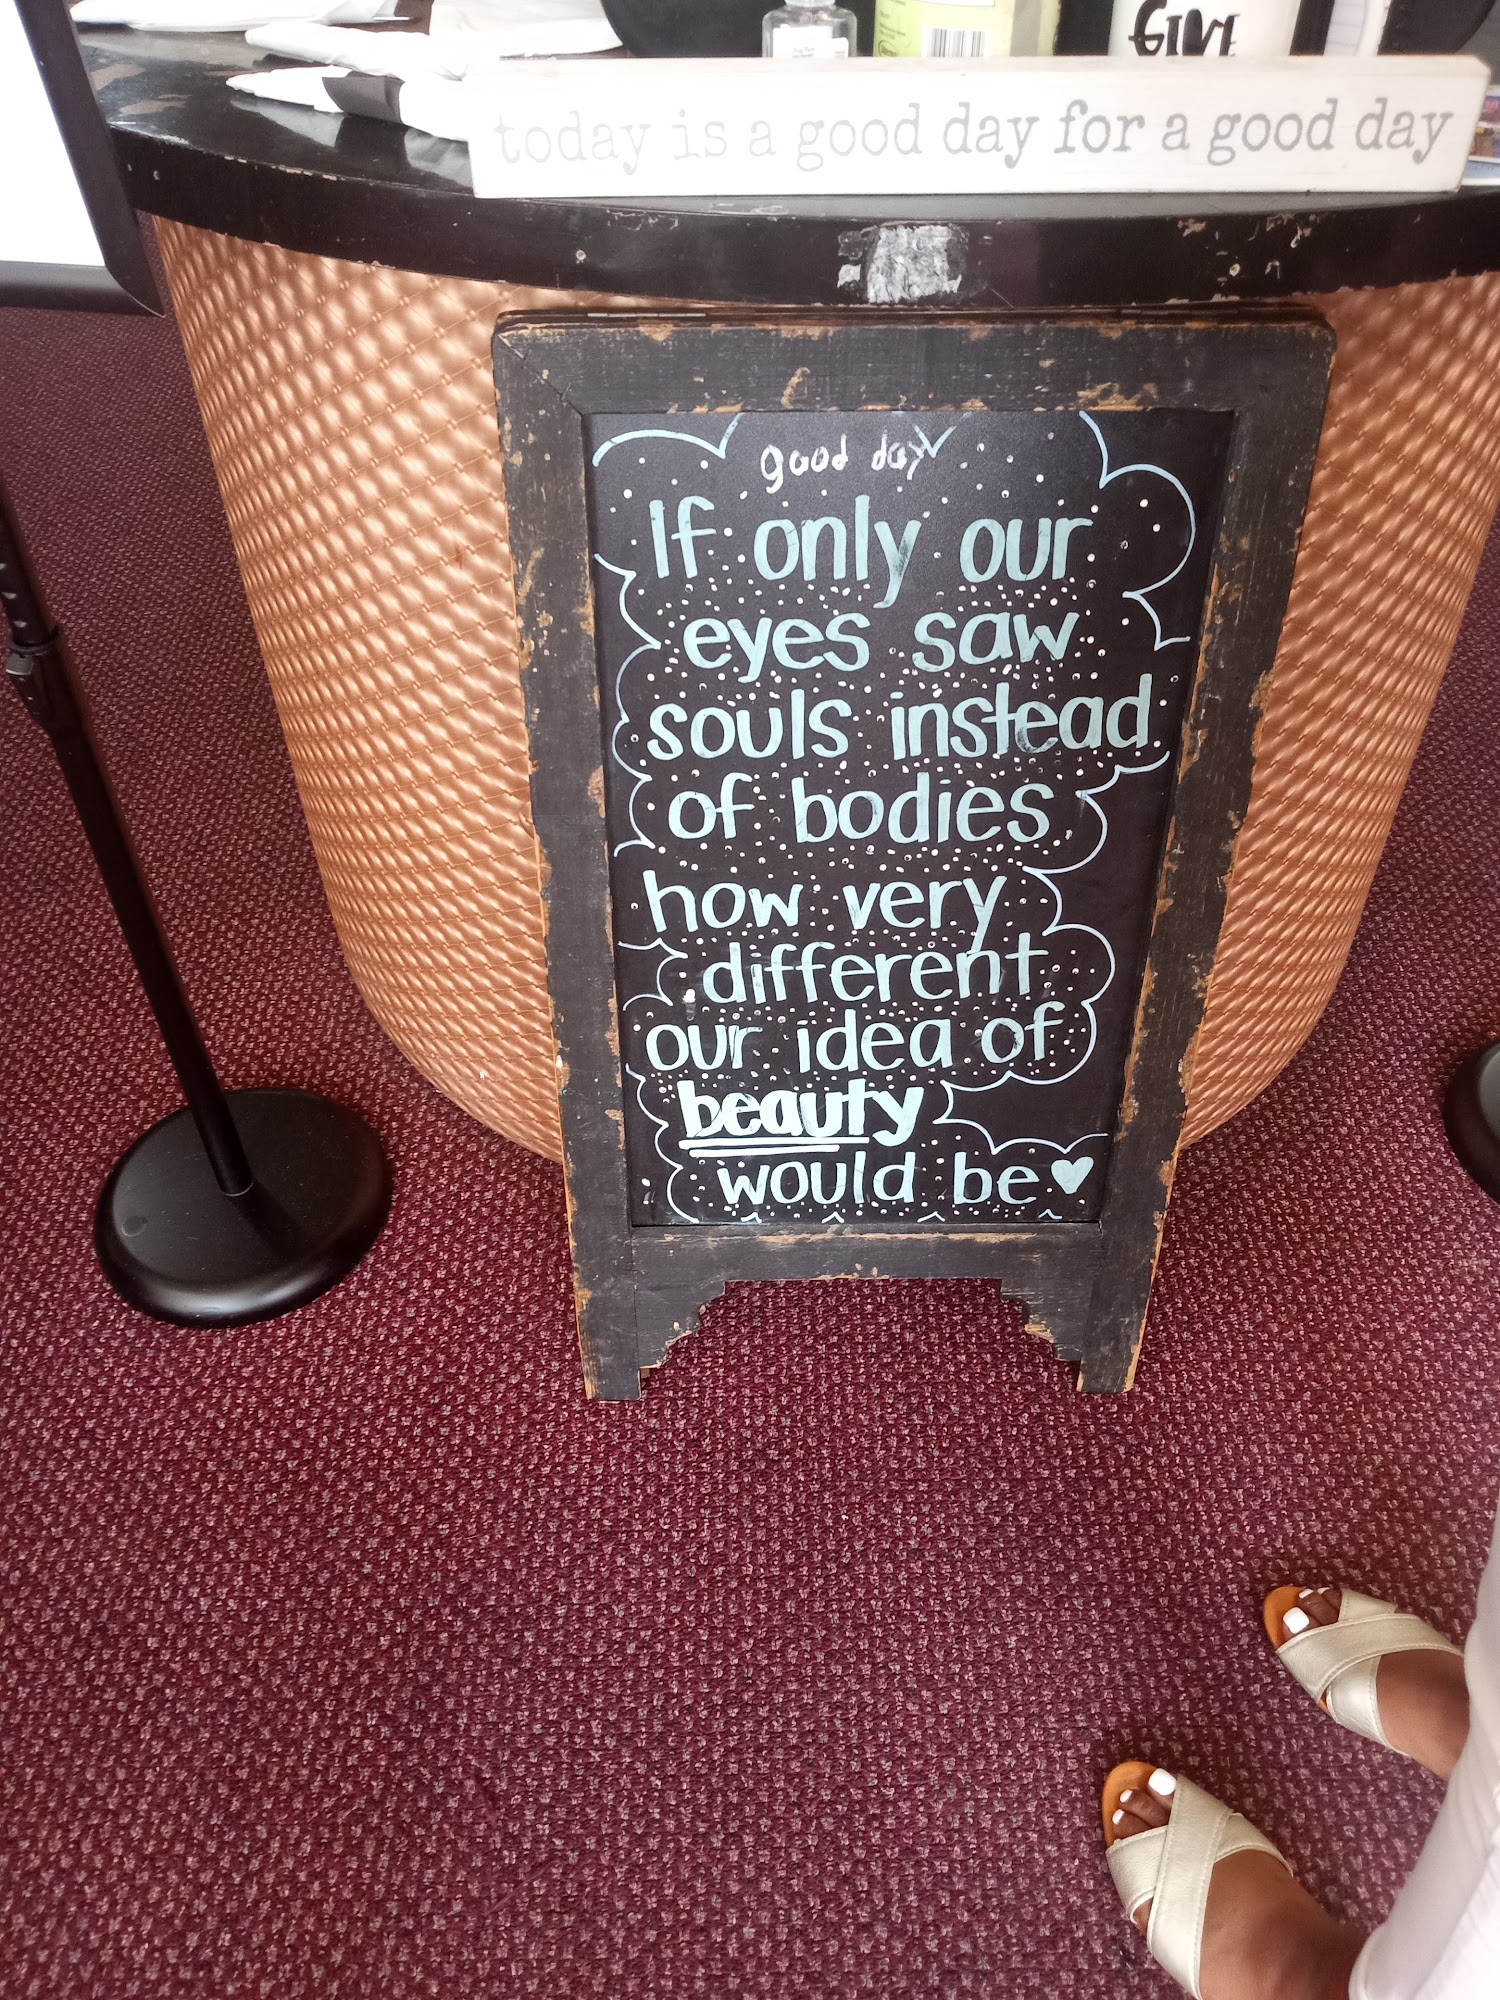 GIVE
today is a good day for a good day
good day
If only our
eyes saw
souls instead
of bodies
how very
different
our idea of
beauty
would be